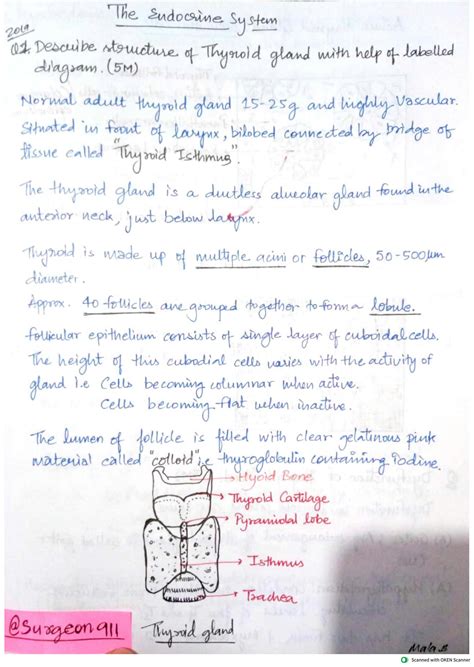 The Endocrine System
2019
Q1 Describe structure of Thyroid gland with help of labelled
diagram. (5M)
Normal adult thyroid gland 15-25g and highly Vascular.
Situated in front of larynx, bilobed connected by bridge of
tissue called "Thyroid Isthmus".
The thyroid gland is a ductless alveolar gland found in the
anterior neck, just below larynx.
Thyroid is made up of multiple acini or follicles, 50-500µm
diameter.
Approx. 40 follicles are grouped together to form a lobule.
follicular epithelium consists of single layer of cuboidal cells.
The height of this cubodial cells varies with the activity of
gland i.e Cells becoming columnar when active.
Cells becoming flat when inactive.
The lumen of follicle is filled with clear gelatinous pink
material called "colloid" i.e thyroglobulin containing iodine.
Hyoid Bone
Thyroid Cartilage
Pyramidal lobe
Isthmus
Trachea
@Surgeon911
Thyroid gland
Mala.B
Scanned with OKEN Scanner